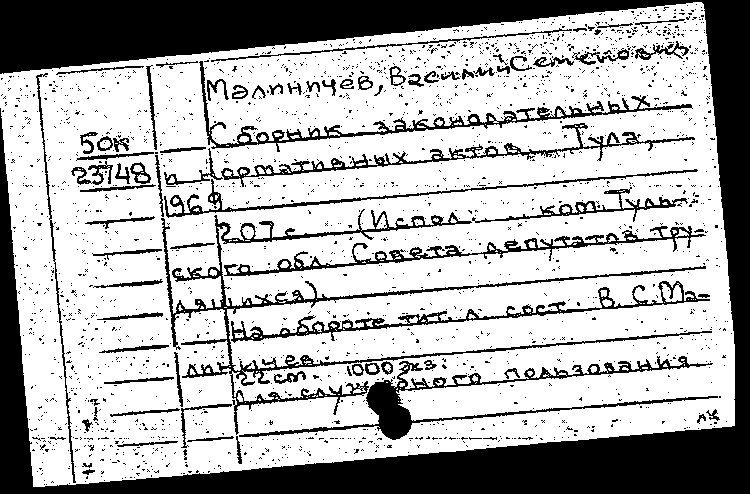 Малиничев, Василий Семенович
50к Сборник законодательных
23748 и нормативных актов. Тула,
1969
207 с. (Испол. ком. Туль-
ского обл. Совета депутатов тру-
дящихся).
На обороте тит. л. сост. В. С. Ма-
линичев.
22 см. 1000 экз.
Для служебного пользования